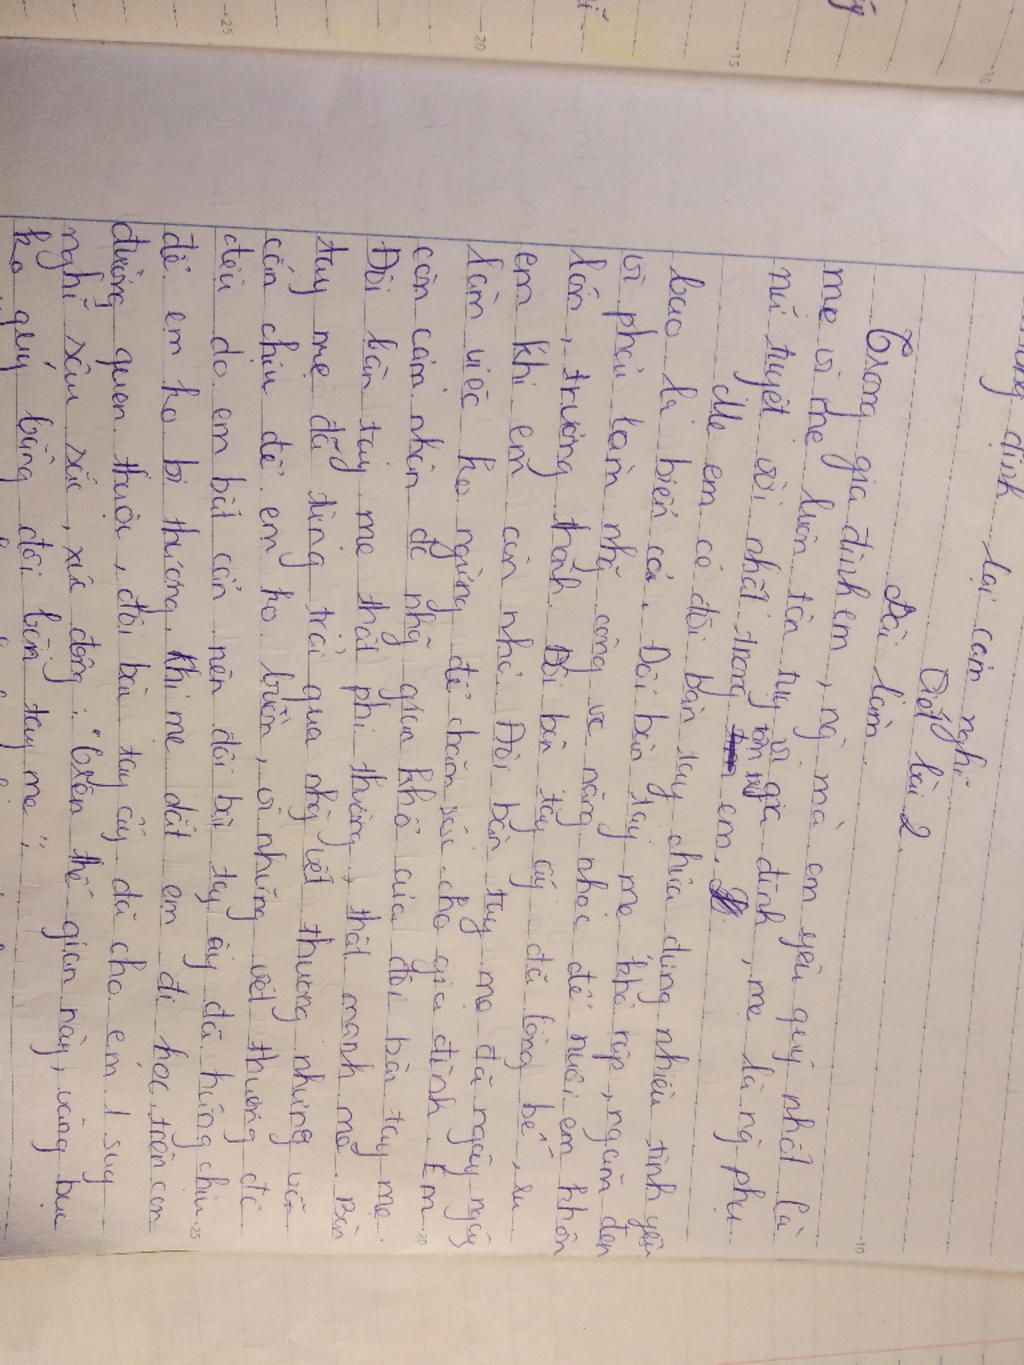 định lại cảm nghĩ
Viết bài 2.
Bài làm
Trong gia đình em, ng mà em yêu quý nhất là
mẹ vì mẹ luôn tận tụy vì gia đình, mẹ là ng phụ
nữ tuyệt vời nhất trong em.
Mẹ em có đôi bàn tay chứa đựng nhiều tình yêu
bao la biển cả. Đôi bàn tay mẹ khô ráp, ngăm đen
vì phải làm nhữ công vc nặng nhọc để nuôi em khôn
lớn, trưởng thành. Đôi bàn tay ấy đã bồng bế, ru
em khi em còn nhỏ. Đôi bàn tay mẹ đã ngày ngày
làm việc ko ngừng để chăm sóc cho gia đình. Em
còn cảm nhận đc nhữ gian khổ của đôi bàn tay mẹ.
Đôi bàn tay mẹ thật phi thường, thật mạnh mẽ. Bàn
tay mẹ đã từng trải qua nhữ vết thương nhưng vẫn
cắn chịu để em ko buồn, vì những vết thương đó
đều do em bất cẩn nên đôi bàn tay ấy đã hứng chịu
để em ko bị thương. Khi mẹ dắt em đi học trên con
đường quen thuộc, đôi bàn tay ấy đã cho em 1 suy
nghĩ sâu sắc, xúc động: "trên thế gian này, vàng bạc
ko quý bằng đôi bàn tay mẹ".
-10
-25
-20
-25
-20
-15
-10